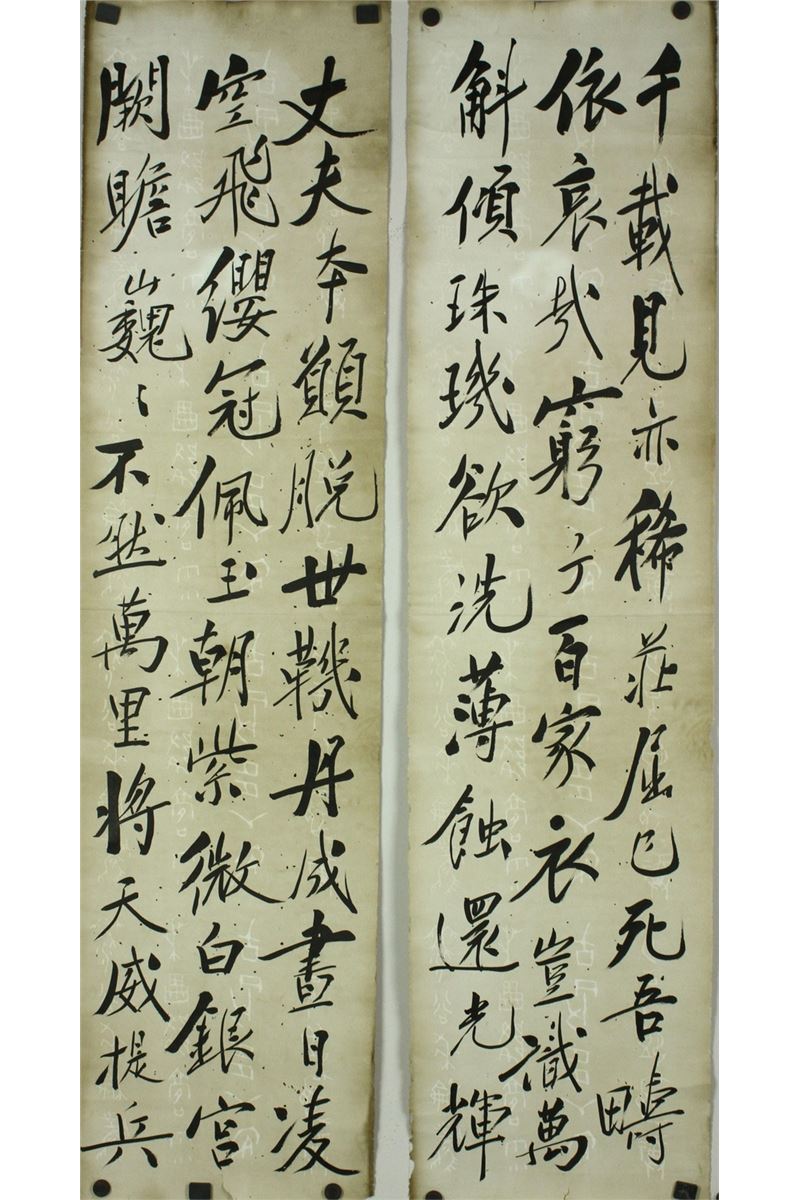 千載見亦稀莊屈已死吾疇
依哀哉窮子百家衣豈識萬
斛傾珠璣欲洗薄蝕還光輝
丈夫本願脫世鞿丹成晝日凌
空飛纓冠佩玉朝紫微白銀宮
闕瞻巍〻不然萬里將天威提兵